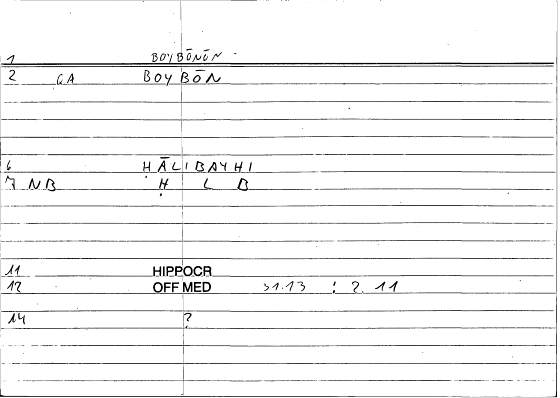 1 BOYBŌNŌN
2 GA BOYBŌN
6 ḤĀLIBAYHI
7 NB Ḥ L B
11 HIPPOCR
12 OFF MED 31.13 : 2. 11
14 ?